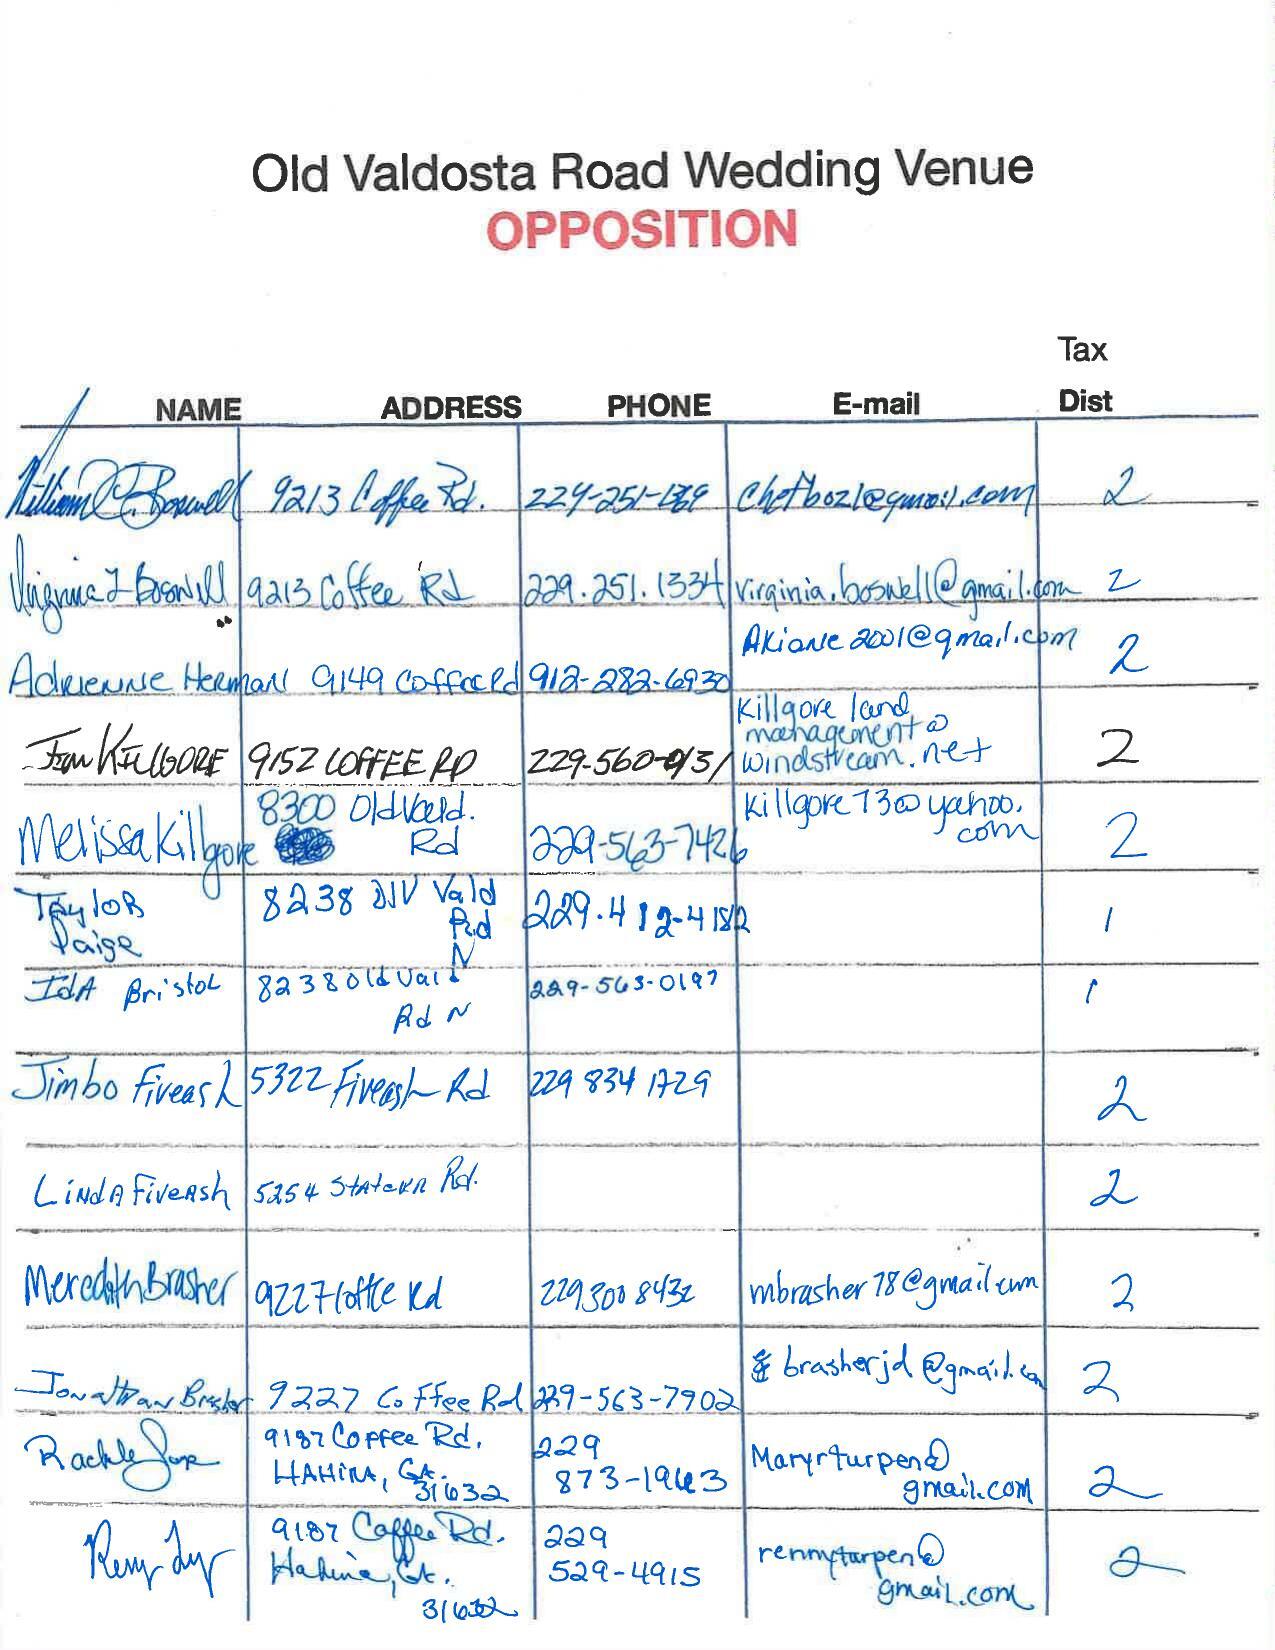 Old Valdosta Road Wedding Venue
OPPOSITION
NAME ADDRESS PHONE E-mail Tax Dist
William Boswell 9213 Coffee Rd. chefboz1@gmail.com 2
Virginia L Boswell 9213 Coffee Rd 229.251.1334 virginia.boswell@gmail.com 2
Adrienne Herman 9149 Coffee Rd 912-282-6930 Akiane2001@gmail.com 2
KILLGORE 9152 COFFEE RD Killgore land
management@
windstream.net 2
Melissa Killgore 8300 Old Vald.
Rd 229-563-7426 Killgore73@yahoo.
com 2
Taylor
Paige 8238 Old Vald
Rd
N 1
Ida Bristol 8238 Old Vald
Rd N 229-563-0197 1
Jimbo Fiveash 5322 Fiveash Rd 229 834 1729 2
Linda Fiveash 5254 Rd. 2
Meredith Brasher 9227 Coffee Rd 229 300 8432 mbrasher78@gmail.com 2
Jonathan Brasher 9227 Coffee Rd 229-563-7902 brasherjd@gmail.com 2
9187 Coffee Rd.
HAHIRA, GA.
31632 229
873-1963 Maryrturpen@
gmail.com 2
9187 Coffee Rd.
Hahira, Ga.
31632 229
529-4915 rennyturpen@
gmail.com 2